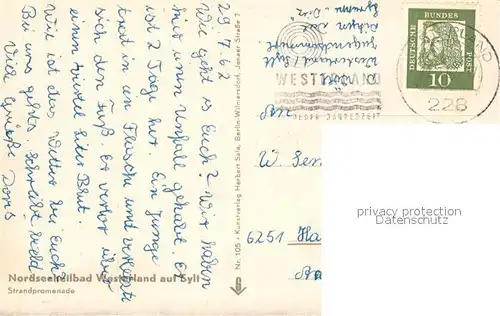 29.7.62
Wie geht es Euch? Wir haben
hier einen Unfall gehabt. Er
ist 2 Tage her. Ein Junge
trat in eine Flasche und verletzte
sich den Fuß. Er verlor über
einen viertel Liter Blut.
Wie ist das Wetter bei Euch?
Bei uns geht es. Schreibt bald
Viele Grüße Doris
Nordseeheilbad Westerland auf Sylt
Strandpromenade
Nr. 105 - Kunstverlag Herbert Sala, Berlin-Wilmersdorf, Jenaer Straße
Westerland/Sylt
Jugend
WESTERLAND
ZU JEDER JAHRESZEIT
DEUTSCHE BUNDES POST
10
228
W.
6251 Ha
privacy protection
Datenschutz